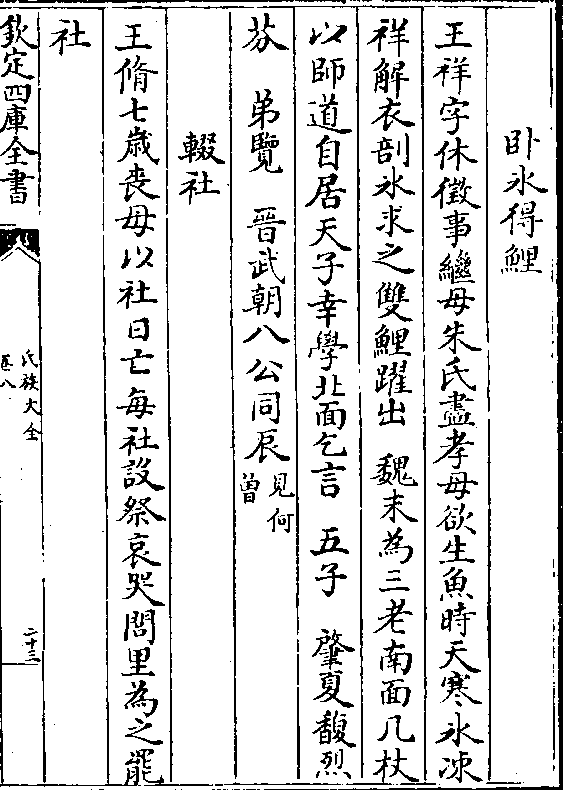 卧氷得鯉
王祥字休徵事繼母朱氏盡孝母欲生魚時天寒氷凍
祥解衣剖氷求之雙鯉躍出　魏末為三老南面几杖
以師道自居天子幸學北面乞言　五子　肇夏馥烈
芬　弟覽　晋武朝八公同辰見何曽
輟社
王脩七歳喪母以社日亡每社設祭哀哭閭里為之罷
社
欽定四庫全書
氏族大全
卷八
二十三